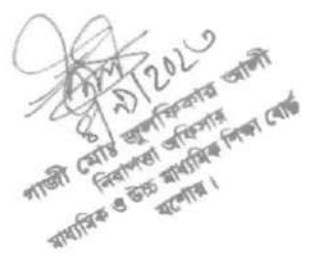 ৪/১/২০২৩
গাজী মোঃ জুলফিকার আলী
নিরাপত্তা অফিসার
মাধ্যমিক ও উচ্চ মাধ্যমিক শিক্ষা বোর্ড
যশোর।